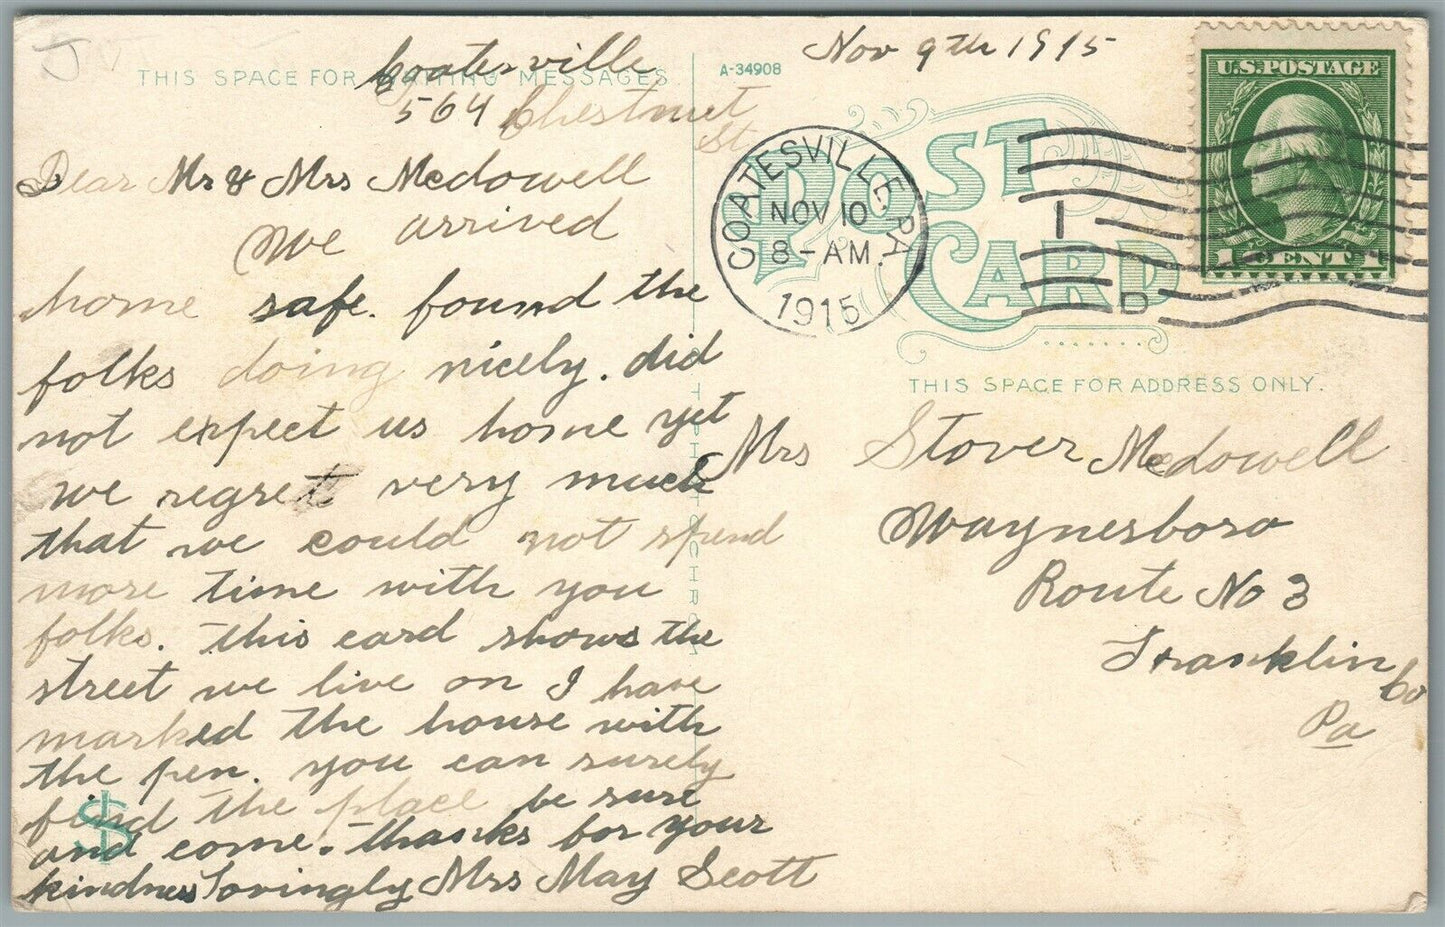 Nov 9th 1915
Coatesville
THIS SPACE FOR WRITING MESSAGES
A-34908
564 Chestnut
St
Dear Mr & Mrs Mcdowell
We arrived
home safe. found the
folks doing nicely. did
not expect us home yet
we regret very much
that we could not spend
more time with you
folks. this card shows the
street we live on I have
marked the house with
the pen. you can surely
find the place be sure
and come. thanks for your
kindness Lovingly Mrs May Scott
$
U.S. POSTAGE
1 CENT 1
COATESVILLE, PA.
NOV 10
8-AM.
1915
1
D
POST
CARD
THIS SPACE FOR ADDRESS ONLY.
Mrs Stover Mcdowell
Waynesboro
Route No 3
Franklin Co
Pa